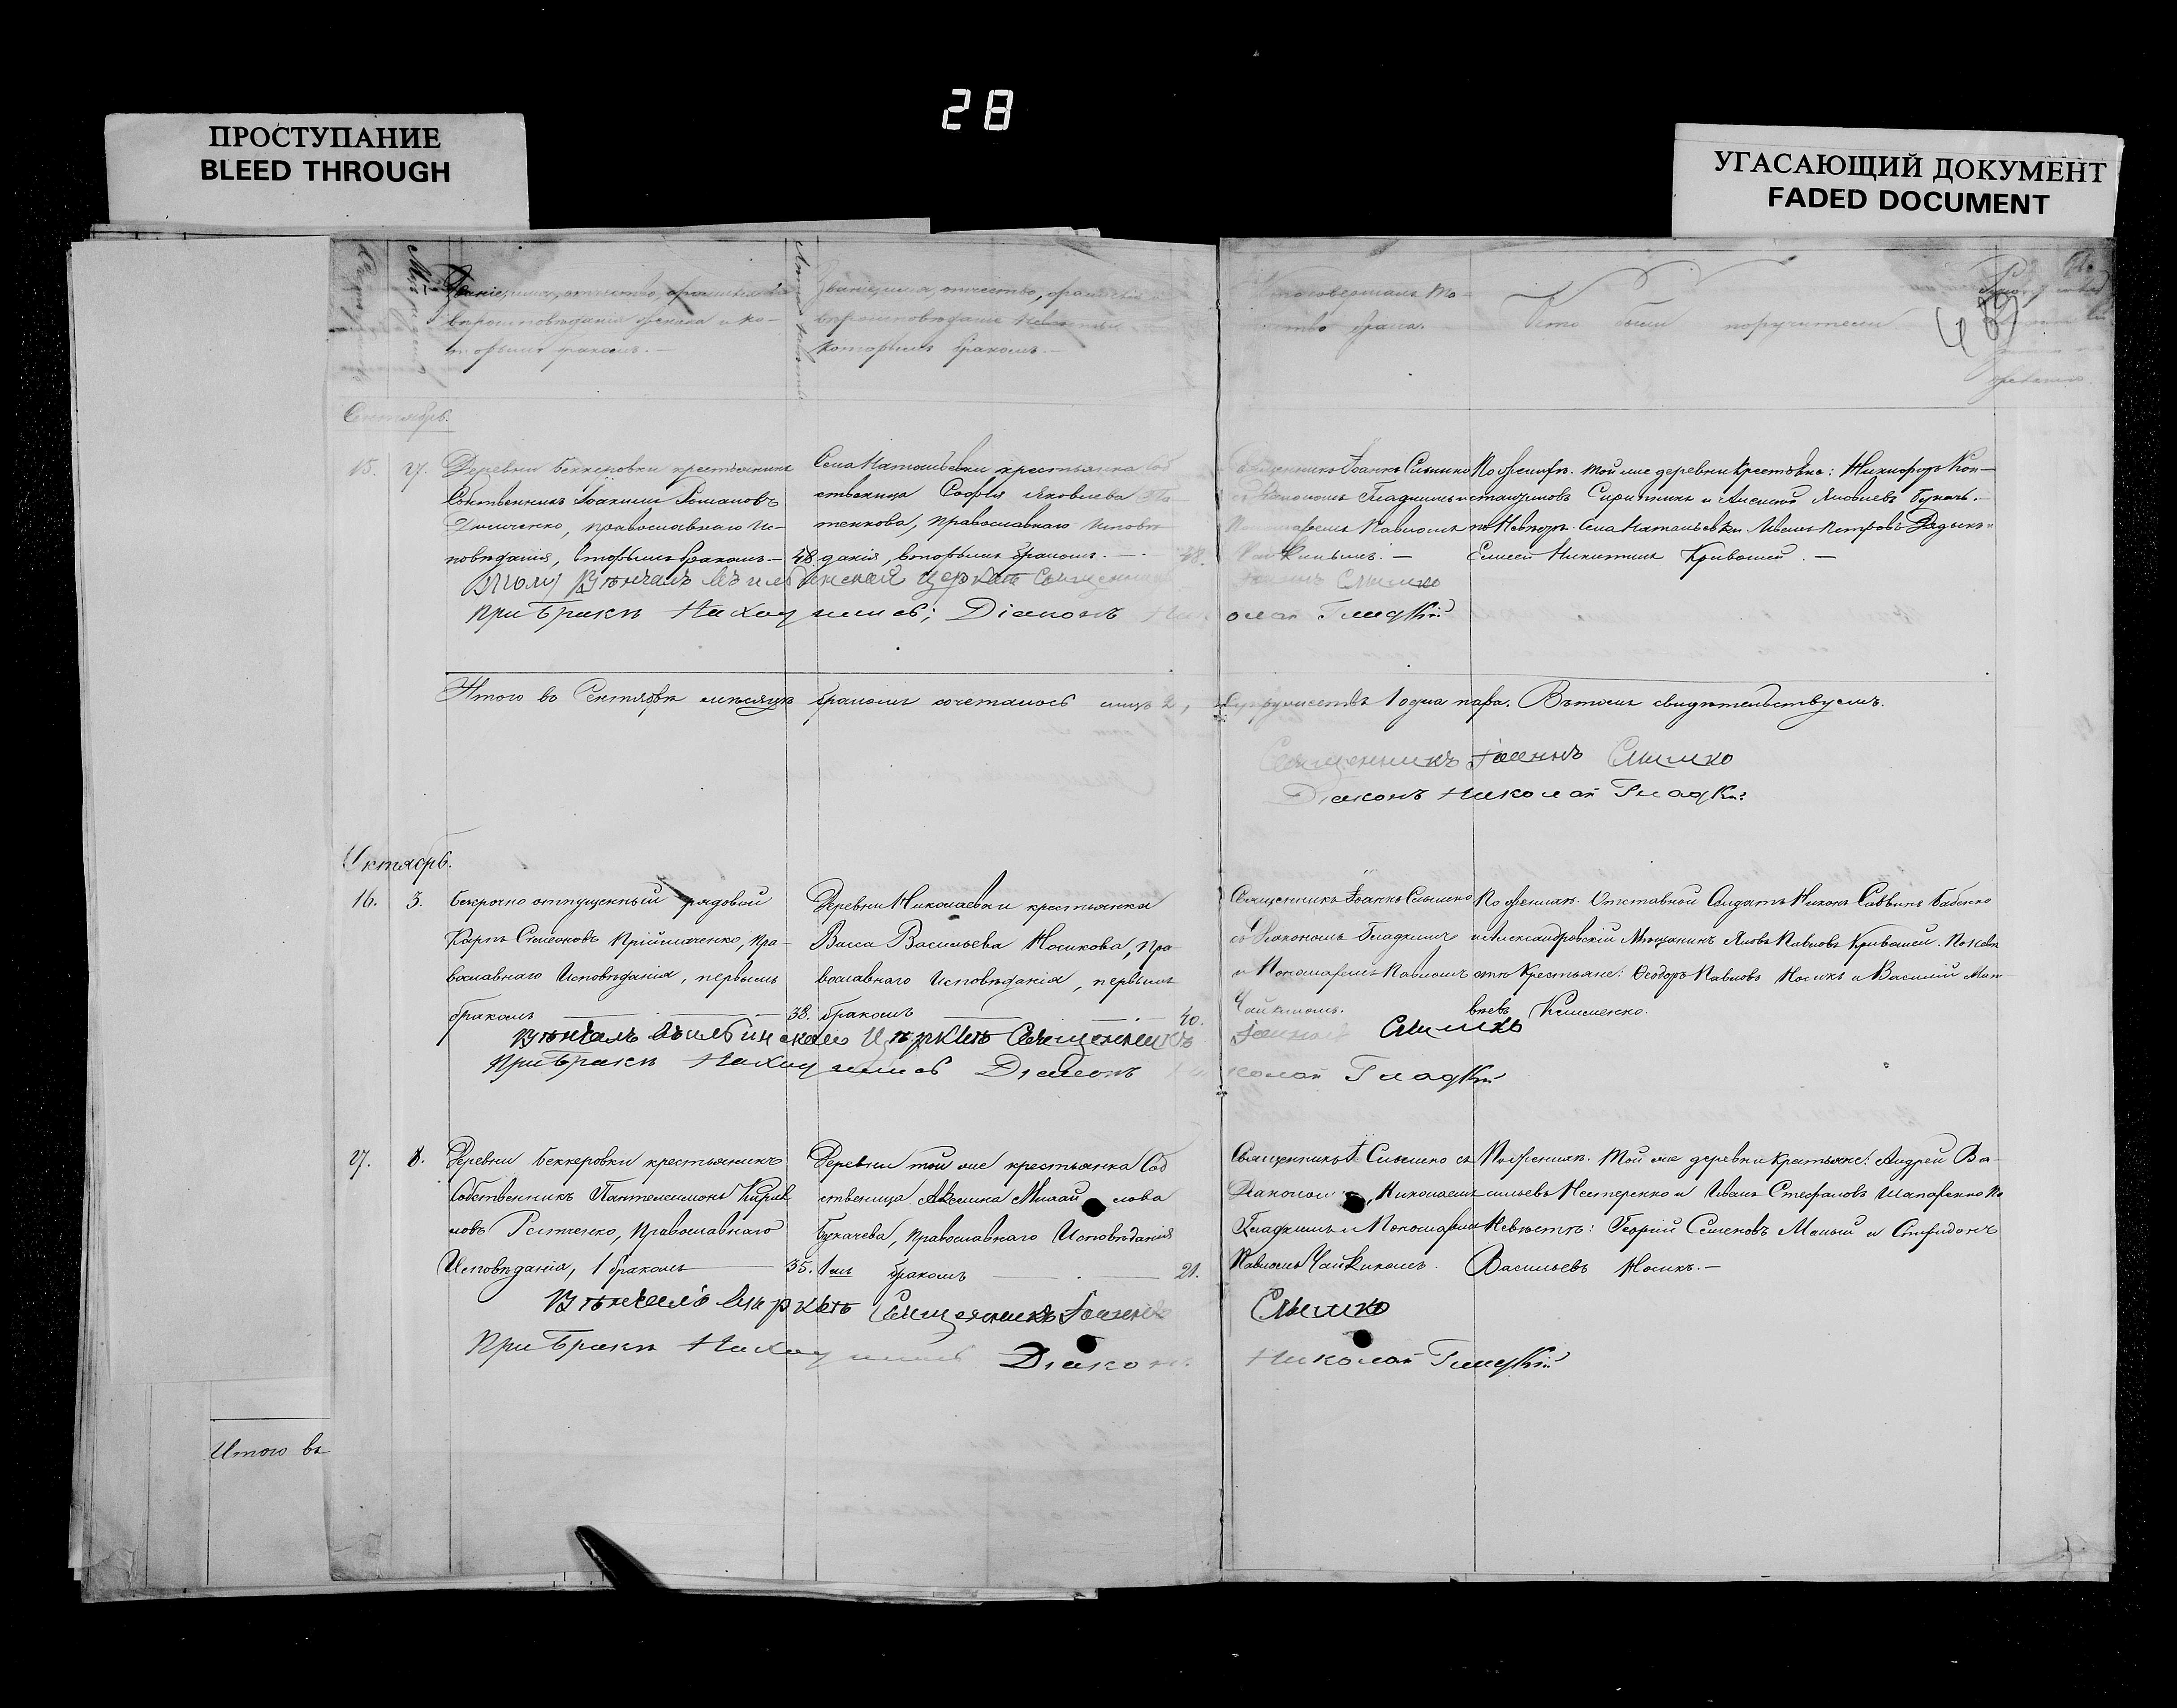 28
ПРОСТУПАНИЕ
BLEED THROUGH
УГАСАЮЩИЙ ДОКУМЕНТ
FADED DOCUMENT
Званіе, имя, отчество, фамилія
вѣроисповѣданіе жениха и ко-
торымъ бракомъ. —
Званіе, имя, отчество, фамилія
вѣроисповѣданіе невѣсты
которымъ бракомъ. —
Кто совершалъ та-
инство брака.
Кто были поручители
Сентябрь.
15. 27.
Деревни Беккеровки крестьянинъ
Собственникъ Іоакимъ Романовъ
православнаго Ис-
повѣданія, вторымъ бракомъ — 48.
Села Натальевки крестьянка Соб
ственница Софья Яковлева
православнаго исповѣ
данія, вторымъ бракомъ. — 48.
Священникъ Іоаннъ Слышко
съ Діакономъ Гладкимъ и
Пономаремъ Павломъ
Чайкинымъ. —
По женихѣ. Той же деревни Крестьяне: Никифоръ Кон-
стантиновъ и Алексѣй Яковлевъ Букачъ. —
по Невѣстѣ. Села Натальевки Иванъ Петровъ
Никитинъ Кривошей. —
Вѣнчалъ въ церкви Священникъ Іоаннъ Слышко
При Бракѣ Находились; Діаконъ Николай Гладкій
Итого въ Сентябрѣ мѣсяцѣ бракомъ сочеталось лицъ 2, супружествъ 1 одна пара. Въ томъ свидѣтельствуемъ.
Священникъ Іоаннъ Слышко
Діаконъ Николай Гладкій
Октябрь.
16. 3.
Безсрочно отпущенный рядовой
Карпъ Симеоновъ Прійматченко, пра-
вославнаго Исповѣданія, первымъ
бракомъ — 38.
Деревни Николаевки крестьянка
Васса Васильева Носикова, пра
вославнаго исповѣданія, первымъ
бракомъ — 40.
Священникъ Іоаннъ Слышко
съ Діакономъ Гладкимъ
и Пономаремъ Павломъ
Чайкинымъ.
По женихѣ. Отставной Солдатъ Никонъ Саввинъ Бабенко
и Александровскій Мѣщанинъ Яковъ Павловъ Кривошей. По невѣ
стѣ Крестьяне: Ѳеодоръ Павловъ Носикъ и Василій Мат
вѣевъ Клименко.
Вѣнчалъ въ Церквѣ Священникъ Іоаннъ Слышко
При Бракѣ Находились Діаконъ Николай Гладкій
17. 8.
Деревни Беккеровки крестьянинъ
Собственникъ Пантелеимонъ Кирил
ловъ православнаго
Исповѣданія, 1 бракомъ — 35.
Деревни той же крестьянка Соб
ственница Акилина Михайлова
Букачева, православнаго Исповѣданія
1мъ бракомъ — 21.
Священникъ І Слышко съ
Діакономъ Николаемъ
Гладкимъ и Пономаремъ
Павломъ Чайкинымъ.
По женихѣ. Той же деревни Крестьяне: Андрей Ва-
сильевъ Нестеренко и Иванъ Стефановъ Шапаренко По
Невѣстѣ: Георгій Семеновъ и Спиридонъ
Васильевъ Носикъ. —
Вѣнчалъ въ церквѣ Священникъ Іоаннъ Слышко
При Бракѣ Находились Діаконъ Николай Гладкій
Итого въ